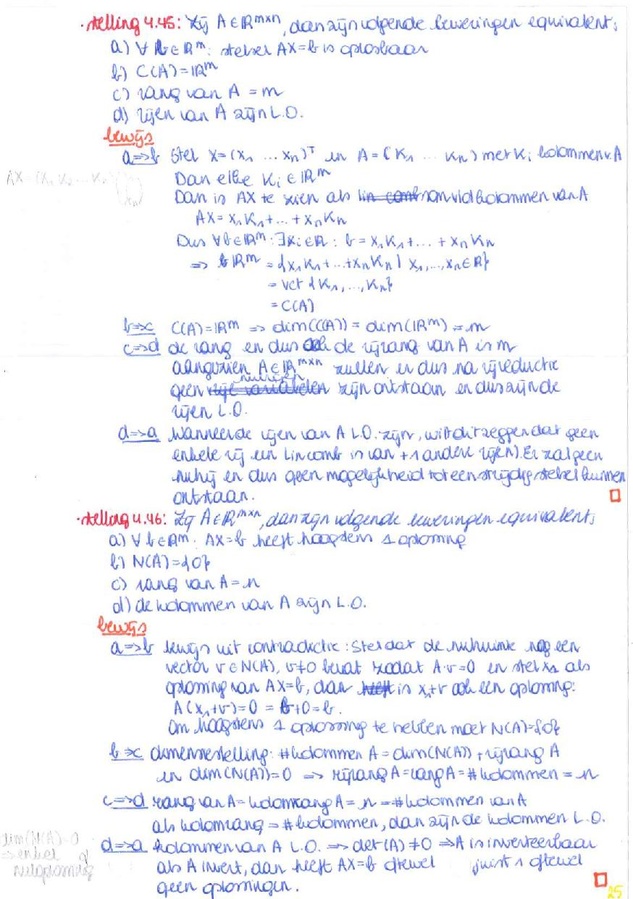 · stelling 4.45: Zij A ∈ ℝᵐˣⁿ, dan zijn volgende beweringen equivalent:
a) ∀ b ∈ ℝᵐ: stelsel AX = b is oplosbaar
b) C(A) = ℝᵐ
c) rang van A = m
d) rijen van A zijn L.O.
bewijs
a⇒b Stel X = (x₁ ... xₙ)ᵀ en A = (K₁ ... Kₙ) met Kᵢ kolommen v. A
Dan elke Kᵢ ∈ ℝᵐ
Dan is AX te zien als lin comb van vd kolommen van A
AX = x₁K₁ + ... + xₙKₙ
Dus ∀ b ∈ ℝᵐ: ∃ xᵢ ∈ ℝ: b = x₁K₁ + ... + xₙKₙ
⇒ ℝᵐ = {x₁K₁ + ... + xₙKₙ | x₁, ..., xₙ ∈ ℝ}
= vct {K₁, ..., Kₙ}
= C(A)
b⇒c C(A) = ℝᵐ ⇒ dim(C(A)) = dim(ℝᵐ) = m
c⇒d de rang en dus ook de rijrang van A is m
aangezien A ∈ ℝᵐˣⁿ zullen er dus na rijreductie
geen nulrijen zijn ontstaan en dus zijn de
rijen L.O.
d⇒a Wanneer de rijen van A L.O. zijn, wilt dit zeggen dat geen
enkele rij een lin comb is van +1 andere rij(en). Er zal geen
nulrij en dus geen mogelijkheid tot een strijdig stelsel kunnen
ontstaan.
· stelling 4.46: Zij A ∈ ℝᵐˣⁿ, dan zijn volgende beweringen equivalent:
a) ∀ b ∈ ℝᵐ: AX = b heeft hoogstens 1 oplossing
b) N(A) = {0}
c) rang van A = n
d) de kolommen van A zijn L.O.
bewijs
a⇒b bewijs uit contradictie: Stel dat de nulruimte nog een
vector v ∈ N(A), v ≠ 0 bevat zodat A·v = 0 en stel x₁ als
oplossing van AX = b, dan is x₁ + v ook een oplossing:
A(x₁ + v) = 0 = b + 0 = b.
Om hoogstens 1 oplossing te hebben moet N(A) = {0}
b⇒c dimensiestelling: #kolommen A = dim(N(A)) + rijrang A
en dim(N(A)) = 0 ⇒ rijrang A = rang A = #kolommen = n
c⇒d rang van A = kolomrang A = n = #kolommen van A
als kolomrang = #kolommen, dan zijn de kolommen L.O.
d⇒a kolommen van A L.O. ⇒ det(A) ≠ 0 ⇒ A is inverteerbaar
als A invert, dan heeft AX = b ofwel juist 1 ofwel
geen oplossingen.
25